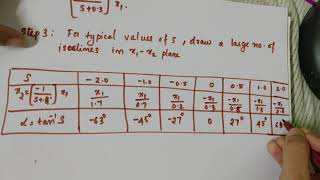 [ / S+0.3 ] x₁
Step 3: For typical values of S, draw a large no. of
isoclines in x₁-x₂ plane
S | -2.0 | -1.0 | -0.5 | 0 | 0.5 | 1.0 | 2.0
x₂ = (-1/S+0.3) x₁ | x₁/1.7 | x₁/0.7 | x₁/0.2 | -x₁/0.3 | -x₁/0.8 | -x₁/1.3 | -x₁/2.3
α = tan⁻¹ S | -63° | -45° | -27° | 0 | 27° | 45° | 63